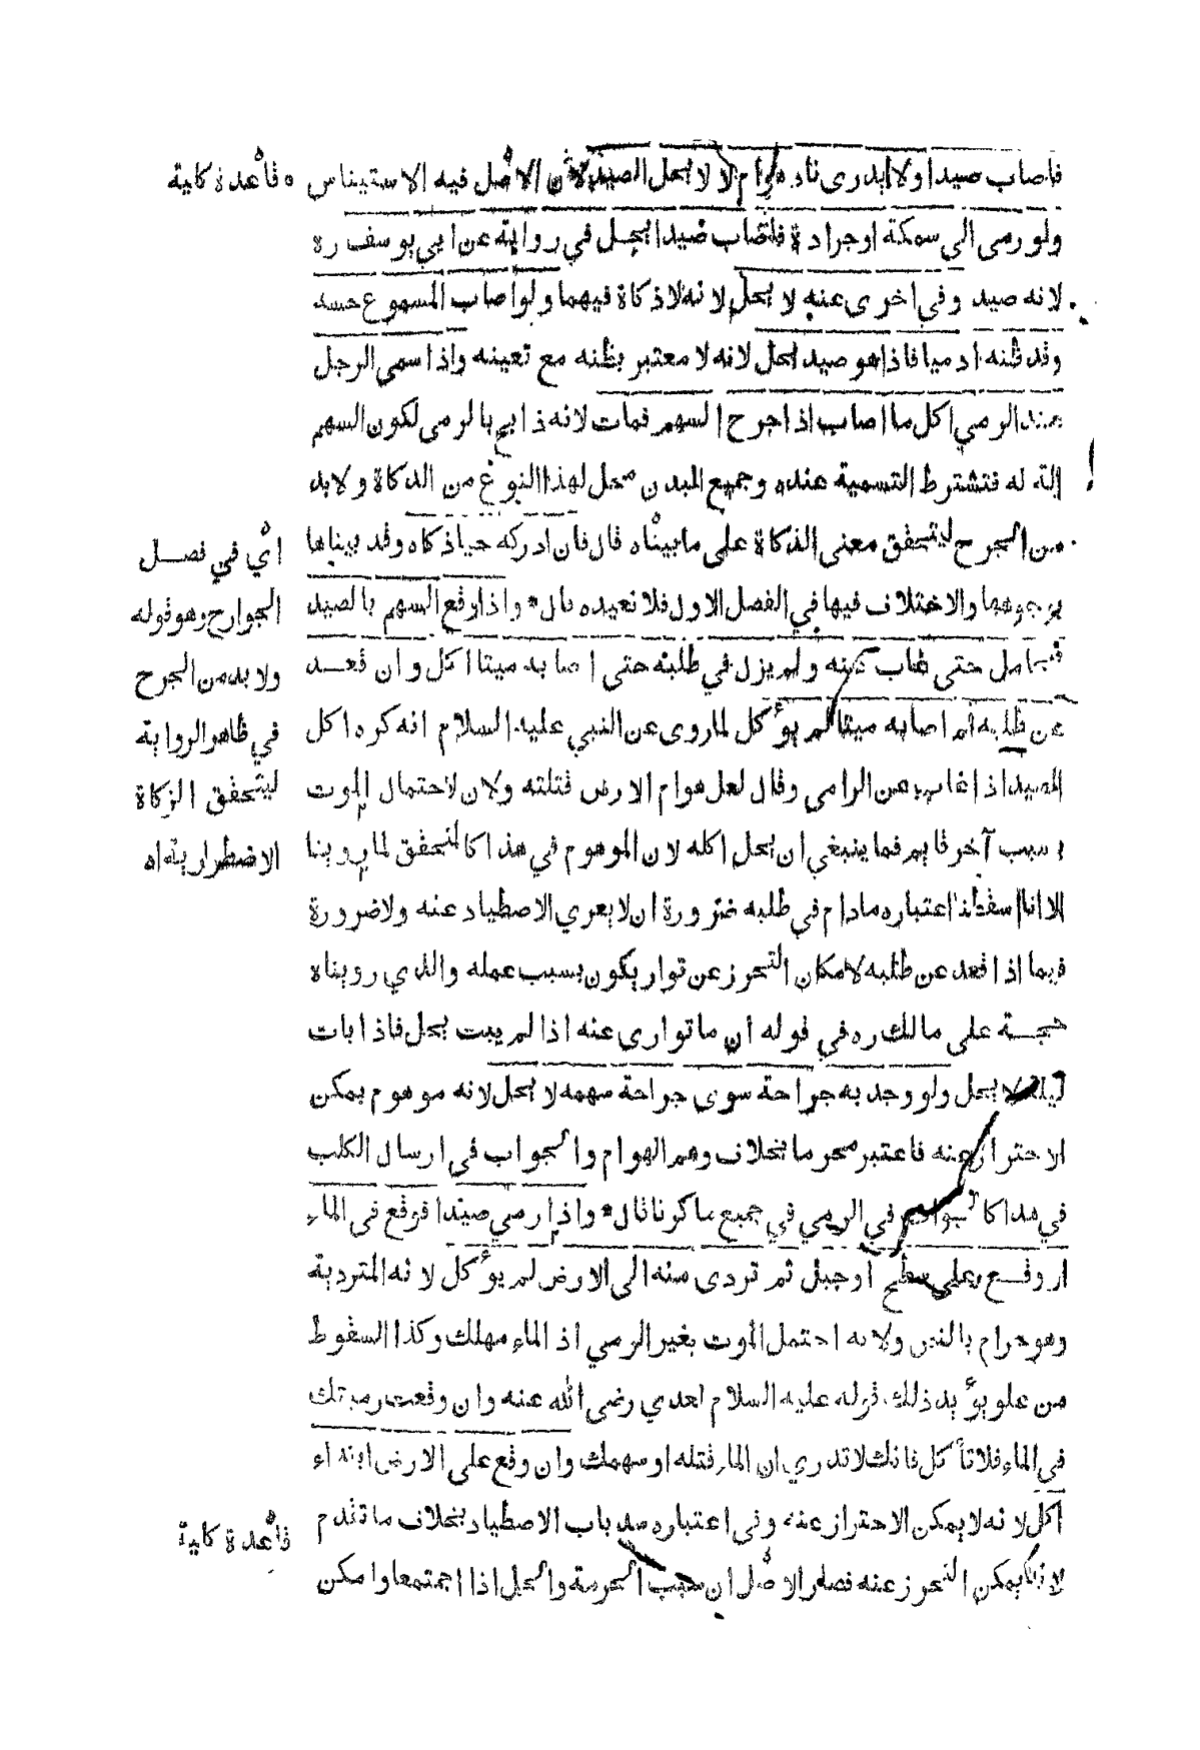 فاصاب صيدا ولا يدرى ناد هو ام لا لا يحل الصيد لان الاصل فيه الاستيناس ٥ قاعدة كلية
ولو رمى الى سمكة او جرادة فاصاب صيدا يحل في رواية عن ابي يوسف ره
لانه صيد وفي اخرى عنه لا يحل لانه لا ذكاة فيهما ولو اصاب المسموع حسه
وقد ظنه ادميا فاذا هو صيد يحل لانه لا معتبر بظنه مع تعينه واذا سمى الرجل
عند الرمي اكل ما اصاب اذا جرح السهم فمات لانه ذابح بالرمى لكون السهم
الة له فتشترط التسمية عنده وجميع البدن محل لهذا النوع من الذكاة ولا بد
من الجرح ليتحقق معنى الذكاة على ما بيناه قال فان ادركه حيا ذكاه وقد بيناها
بوجوهها والاختلاف فيها في الفصل الاول فلا نعيده قال * واذا وقع السهم بالصيد
فتحامل حتى غاب عنه ولم يزل في طلبه حتى اصابه ميتا اكل وان قعد
عن طلبه ثم اصابه ميتا لم يؤكل لما روى عن النبي عليه السلام انه كره اكل
الصيد اذا غاب عن الرامي وقال لعل هوام الارض قتلته ولان لاحتمال الموت
بسبب آخر قايم فما ينبغي ان يحل اكله لان الموهوم في هذا كالمتحقق لما روينا
الا انا اسقطنا اعتباره مادام في طلبه ضرورة ان لا يعري الاصطياد عنه ولا ضرورة
فيما اذا قعد عن طلبه لامكان التحرز عن توار يكون بسبب عمله والذي رويناه
حجة على مالك ره في قوله ان ما توارى عنه اذا لم يبت يحل فاذا بات
ليلة لا يحل ولو وجد به جراحة سوى جراحة سهمه لا يحل لانه موهوم يمكن
الاحتراز عنه فاعتبر محرما بخلاف وهم الهوام والجواب في ارسال الكلب
في هذا كالجواب في الرمي في جميع ما ذكرنا قال * واذا رمى صيدا فوقع في الماء
او وقع على سطح او جبل ثم تردى منه الى الارض لم يؤكل لانه المتردية
وهو حرام بالنص ولانه احتمل الموت بغير الرمي اذ الماء مهلك وكذا السقوط
من علو يؤيد ذلك قوله عليه السلام لعدي رضى الله عنه وان وقعت رميتك
في الماء فلا تأكل فانك لا تدري ان الماء قتله او سهمك وان وقع على الارض ابتداء
اكل لانه لا يمكن الاحتراز عنه وفي اعتباره سد باب الاصطياد بخلاف ما تقدم
لانه يمكن التحرز عنه فصار الاصل ان سبب الحرمة والحل اذا اجتمعا وامكن
اي في فصل
الجوارح وهو قوله
ولا بد من الجرح
في ظاهر الرواية
ليتحقق الزكاة
الاضطرارية اه
قاعدة كلية